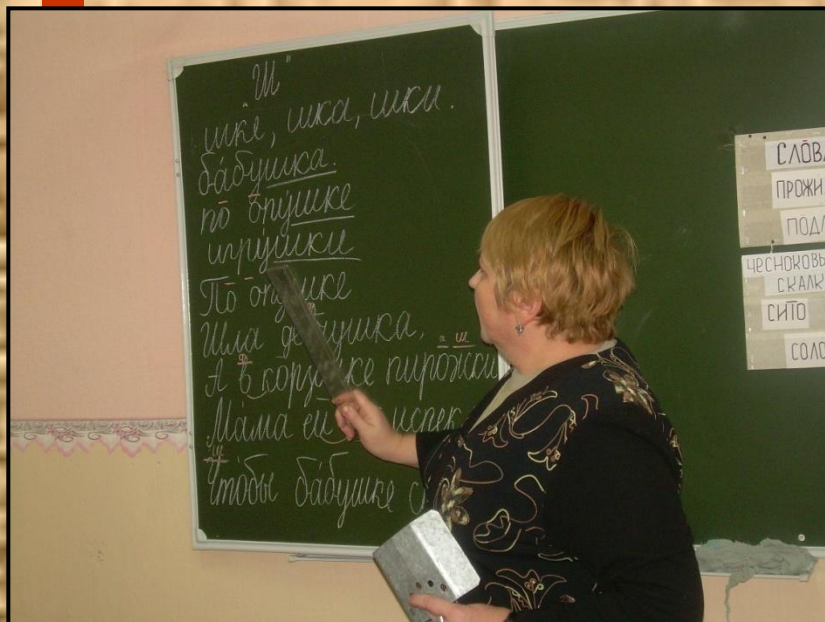 "Ш"
шке, шка, шки.
ба́бушка.
по опу́шке
игру́шки
По опушке
Шла де́вушка,
А в корзи́нке пирожки
Ма́ма ей испек
Чтобы ба́бушке
СЛОВА
ПРОЖИ
ПОДЛ
ЧЕСНОКОВЫ
СКАЛК
СИТО
СОЛО